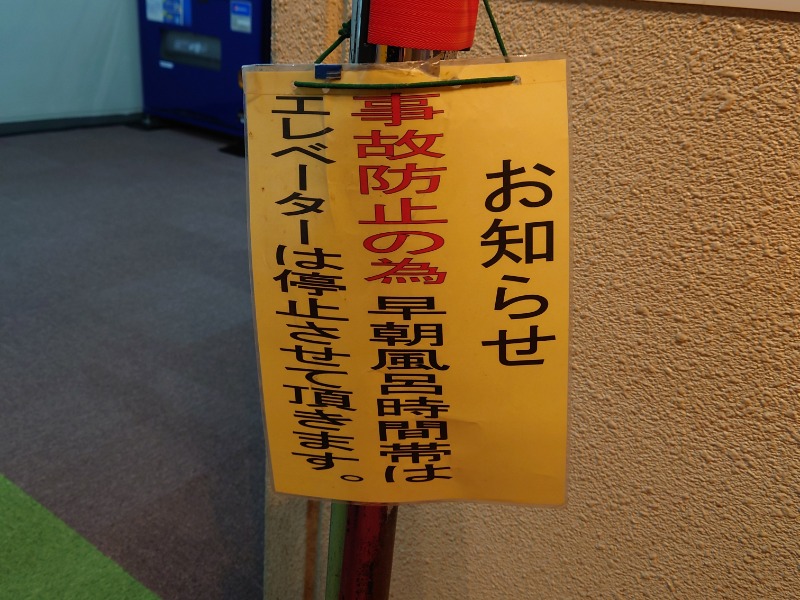 お知らせ
事故防止の為 早朝風呂時間帯は
エレベーターは停止させて頂きます。